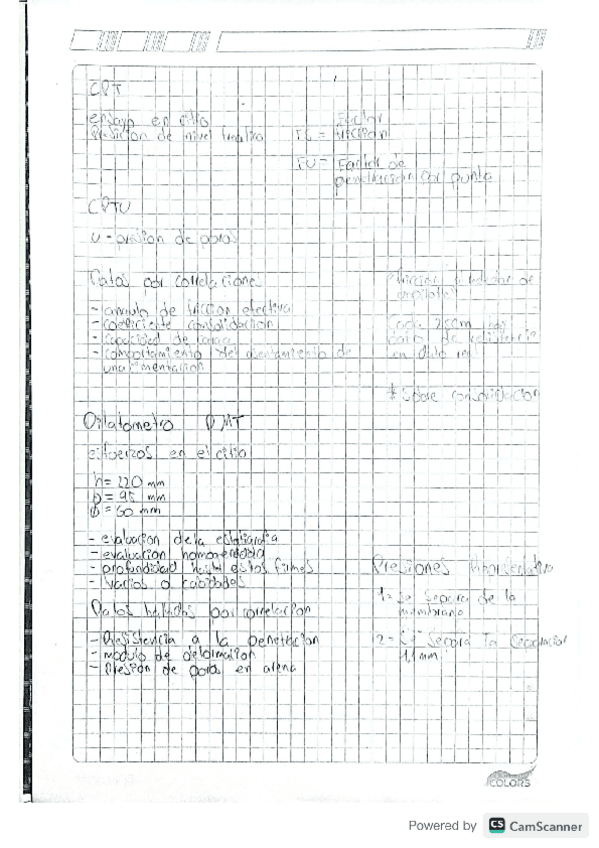 CPT
ensayo en sitio
Medicion de nivel freatico
Factor
friccion
FU = Factor de
penetracion por punta
CPTU
u - presion de poros
Datos por correlacione
- angulo de friccion efectiva
- coeficiente consolidacion
- capacidad de carga
- comportamiento del asentamiento de
una cimentacion
Cada 2.5cm
* Sobre consolidacion
Dilatometro DMT
esfuerzos en el citio
h= 220 mm
b= 95 mm
Φ = 60 mm
- evaluacion de la estatigrafia
- evaluacion homogenidad
- profundidad hasta estos firmes
- vacios o cabidades
Presiones
1= Se separa de la
membrana
Datos hallados por correlacion
- Resistencia a la penetracion
- modulo de deformacion
- Presion de poros en arena
2= Separa la
1,1 mm
COLORS
Powered by CS CamScanner